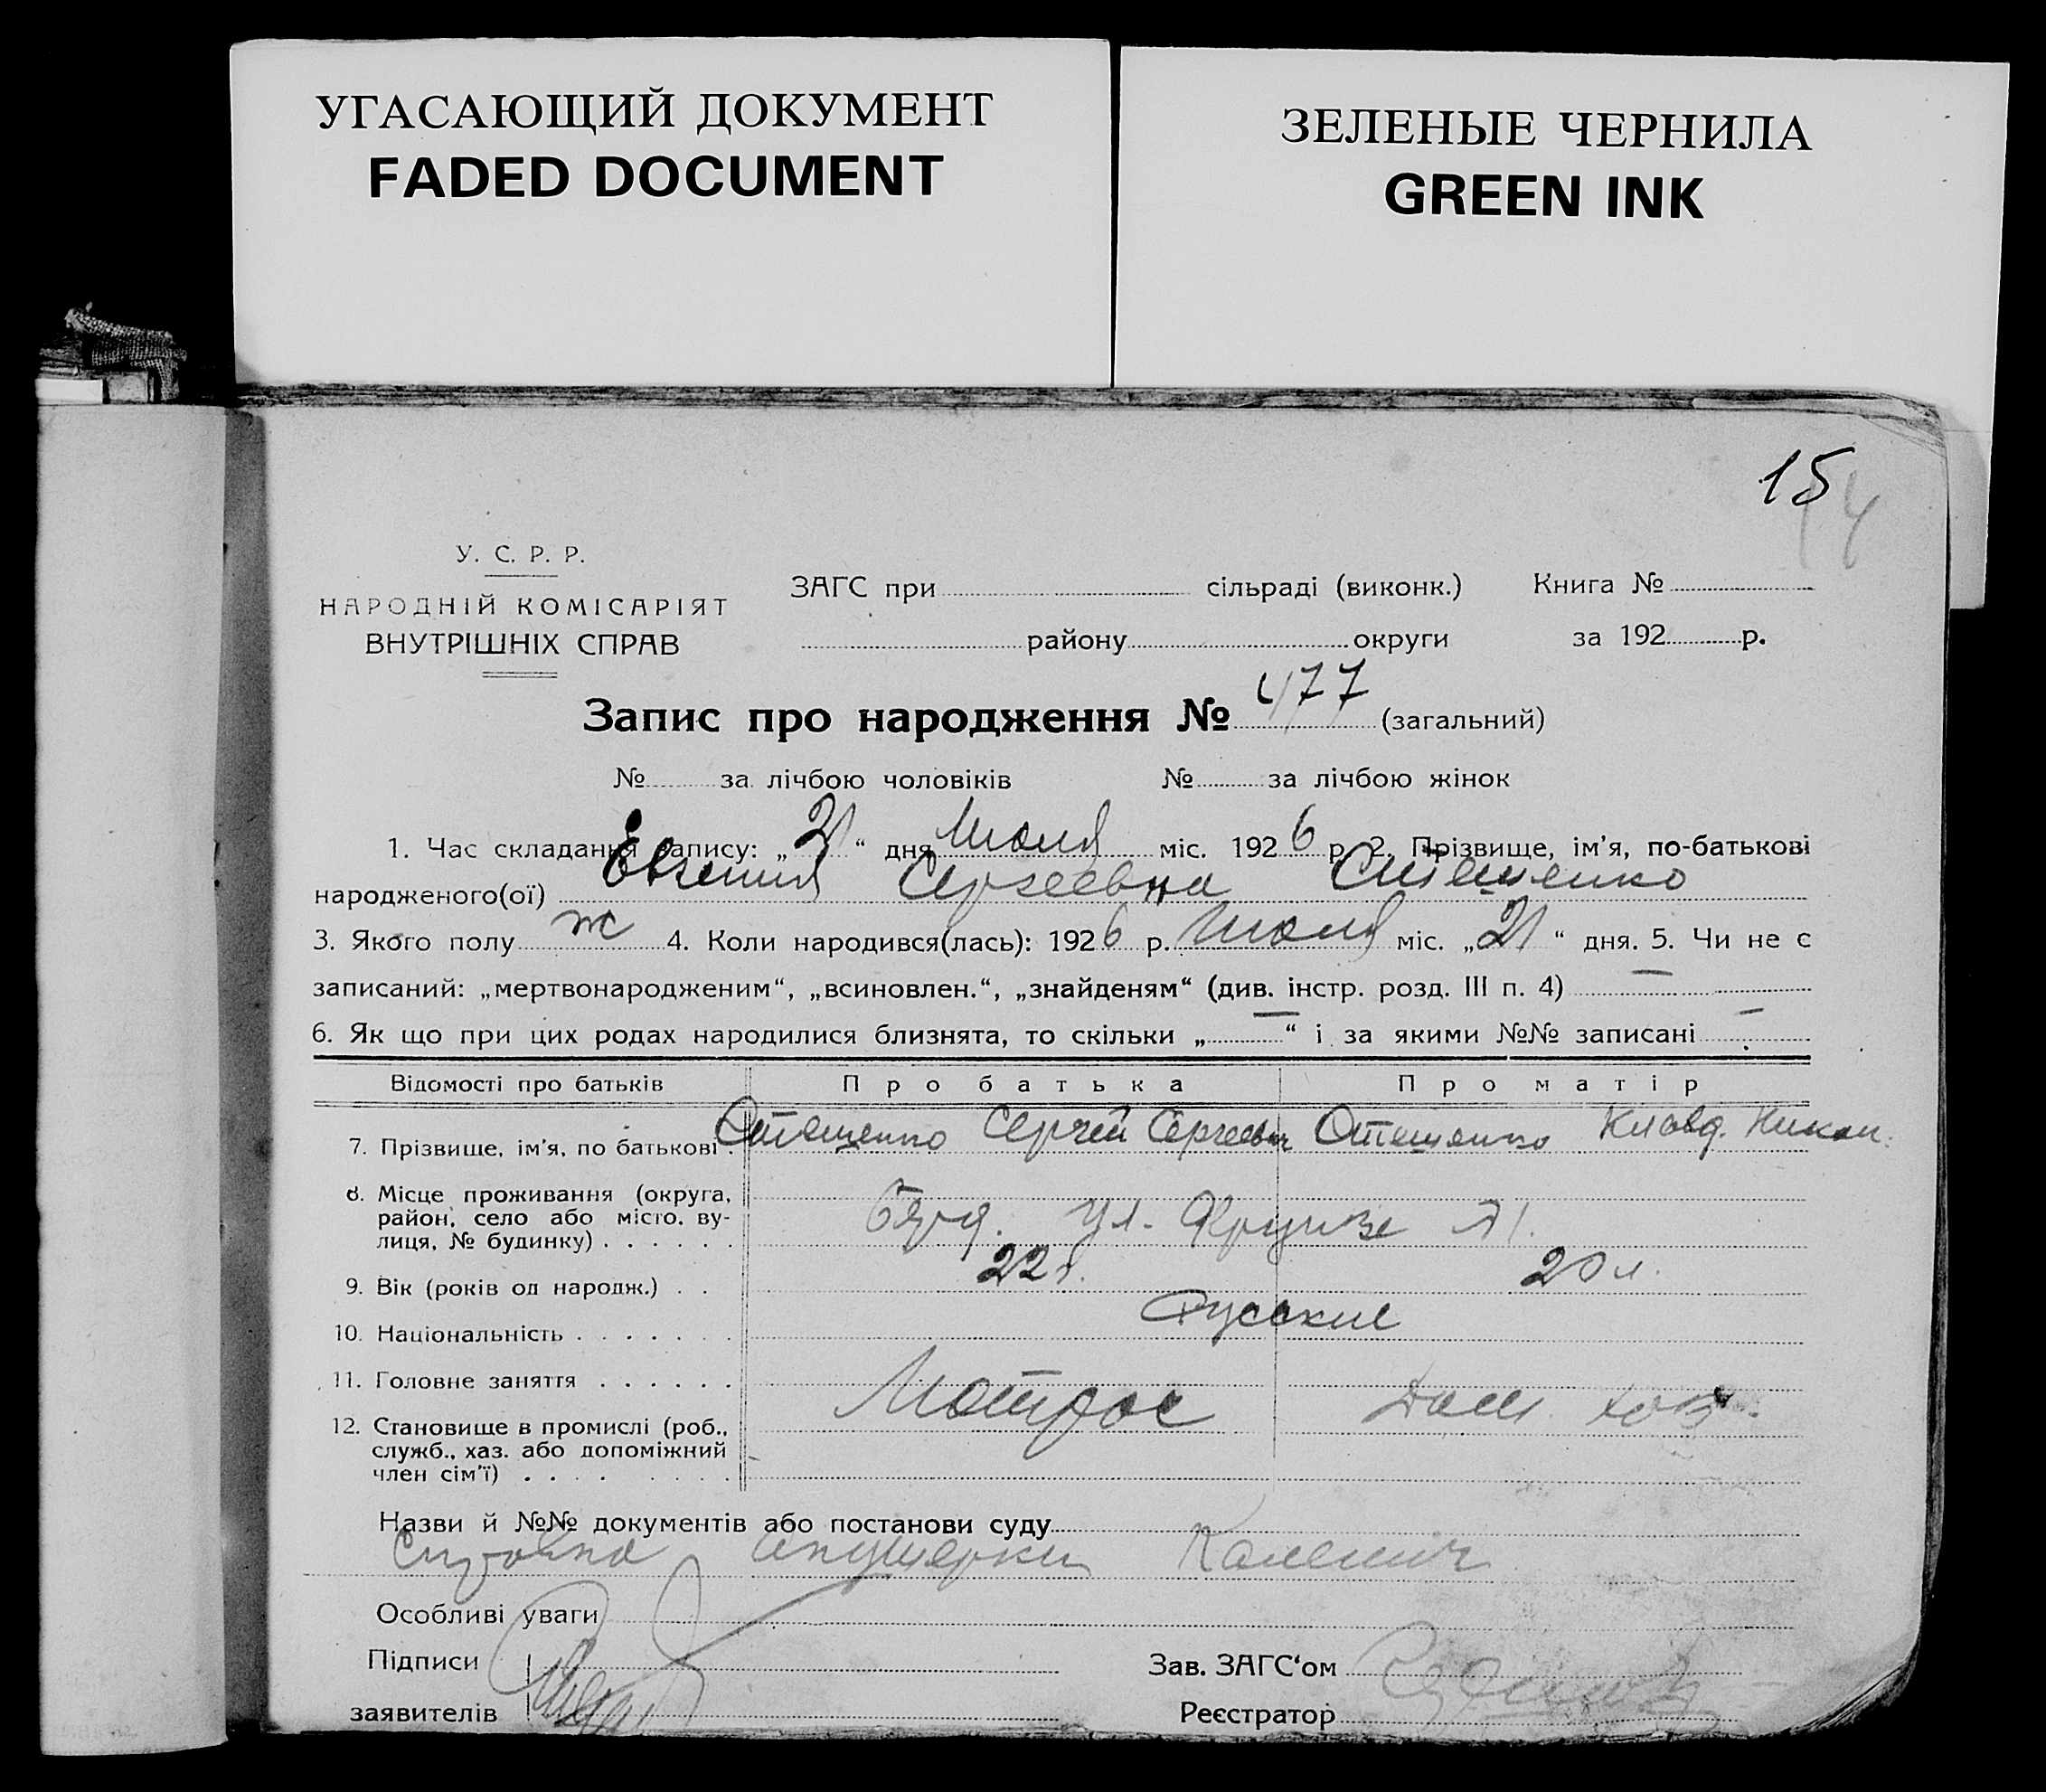 УГАСАЮЩИЙ ДОКУМЕНТ
FADED DOCUMENT
ЗЕЛЕНЫЕ ЧЕРНИЛА
GREEN INK
15
14
У. С. Р. Р.
НАРОДНІЙ КОМІСАРІЯТ
ВНУТРІШНІХ СПРАВ
ЗАГС при сільраді (виконк.) Книга №
району округи за 192 р.
Запис про народження № 477 (загальний)
№ за лічбою чоловіків № за лічбою жінок
1. Час складання запису: „21“ дня Июля міс. 1926 р. 2. Прізвище, ім'я, по-батькові
народженого(ої) Евгения Сергеевна Стешенко
3. Якого полу ж 4. Коли народився(лась): 1926 р. Июля міс. „21“ дня. 5. Чи не є
записаний: „мертвонародженим“, „всиновлен.“, „знайденям“ (див. інстр. розд. III п. 4) —
6. Як що при цих родах народилися близнята, то скільки „—“ і за якими №№ записані —
Відомості про батьків Про батька Про матір
7. Прізвище, ім'я, по батькові . Стешенко Сергей Сергеевич Стешенко Клавд. Никан.
8. Місце проживання (округа,
район, село або місто, ву-
лиця, № будинку) . . . . . . ул. Фрунзе
9. Вік (років од народж.) . . 22 г. 20 л.
10. Національність . . . . . . . Русские
11. Головне заняття . . . . . . Матрос Дом. хоз.
12. Становище в промислі (роб.,
служб., хаз. або допоміжний
член сім'ї) . . . . . . . . .
Назви й №№ документів або постанови суду
Справка акушерки
Особливі уваги
Підписи Зав. ЗАГС'ом
заявителів Реєстратор